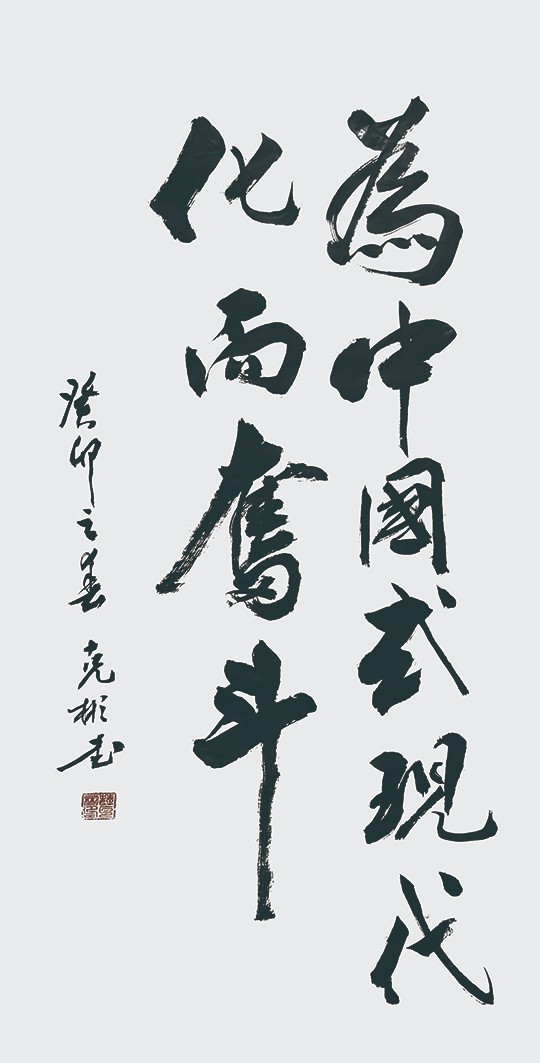 為中國式現代
化而奮斗
癸卯之春 克彬書